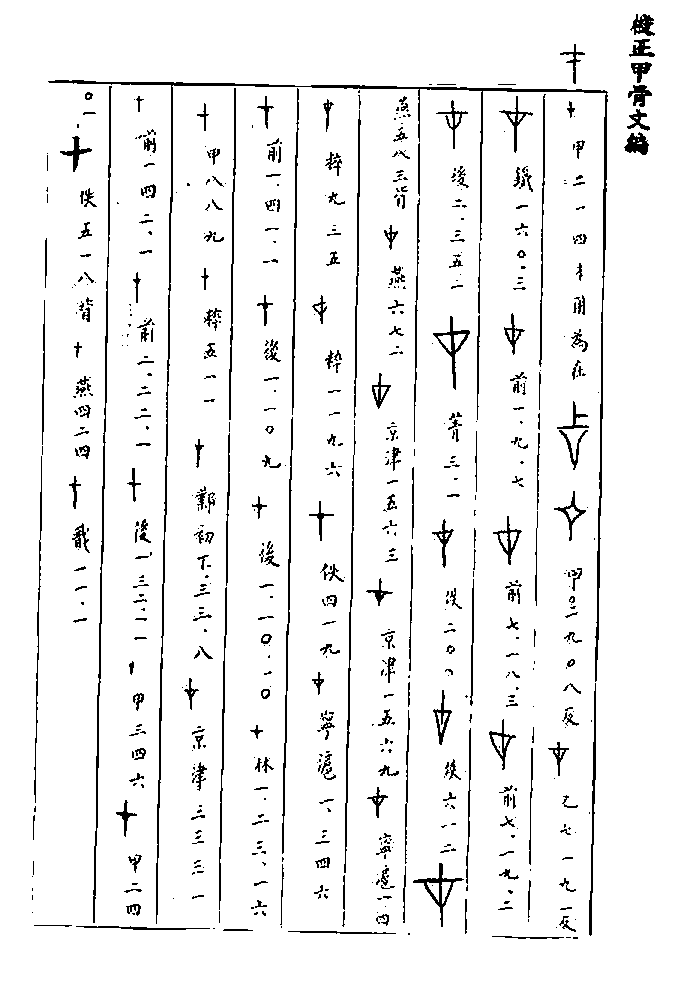 校正甲骨文編
甲二一四 才用為在 甲二九〇八反 乙七一九一反
鐵一六〇.三 前一.九.七 前七.一八.三 前七.一九.二
後二.三五.二 菁三.一 佚二〇〇 佚六一二
燕五八三背 燕六七二 京津一五六三 京津一五六九 寧滬一四
粹九三五 粹一一九六 佚四一九 寧滬一、三四六
前一.四一.一 後一.一〇.九 後一.一〇.一〇 林一.二三.一六
甲八八九 粹五一一 鄴初下.三三.八 京津三三三一
前一四二.一 前二.二二.一 後一三二.一一 甲三四六 甲二四
〇一 佚五一八背 燕四二四 戬一一.一